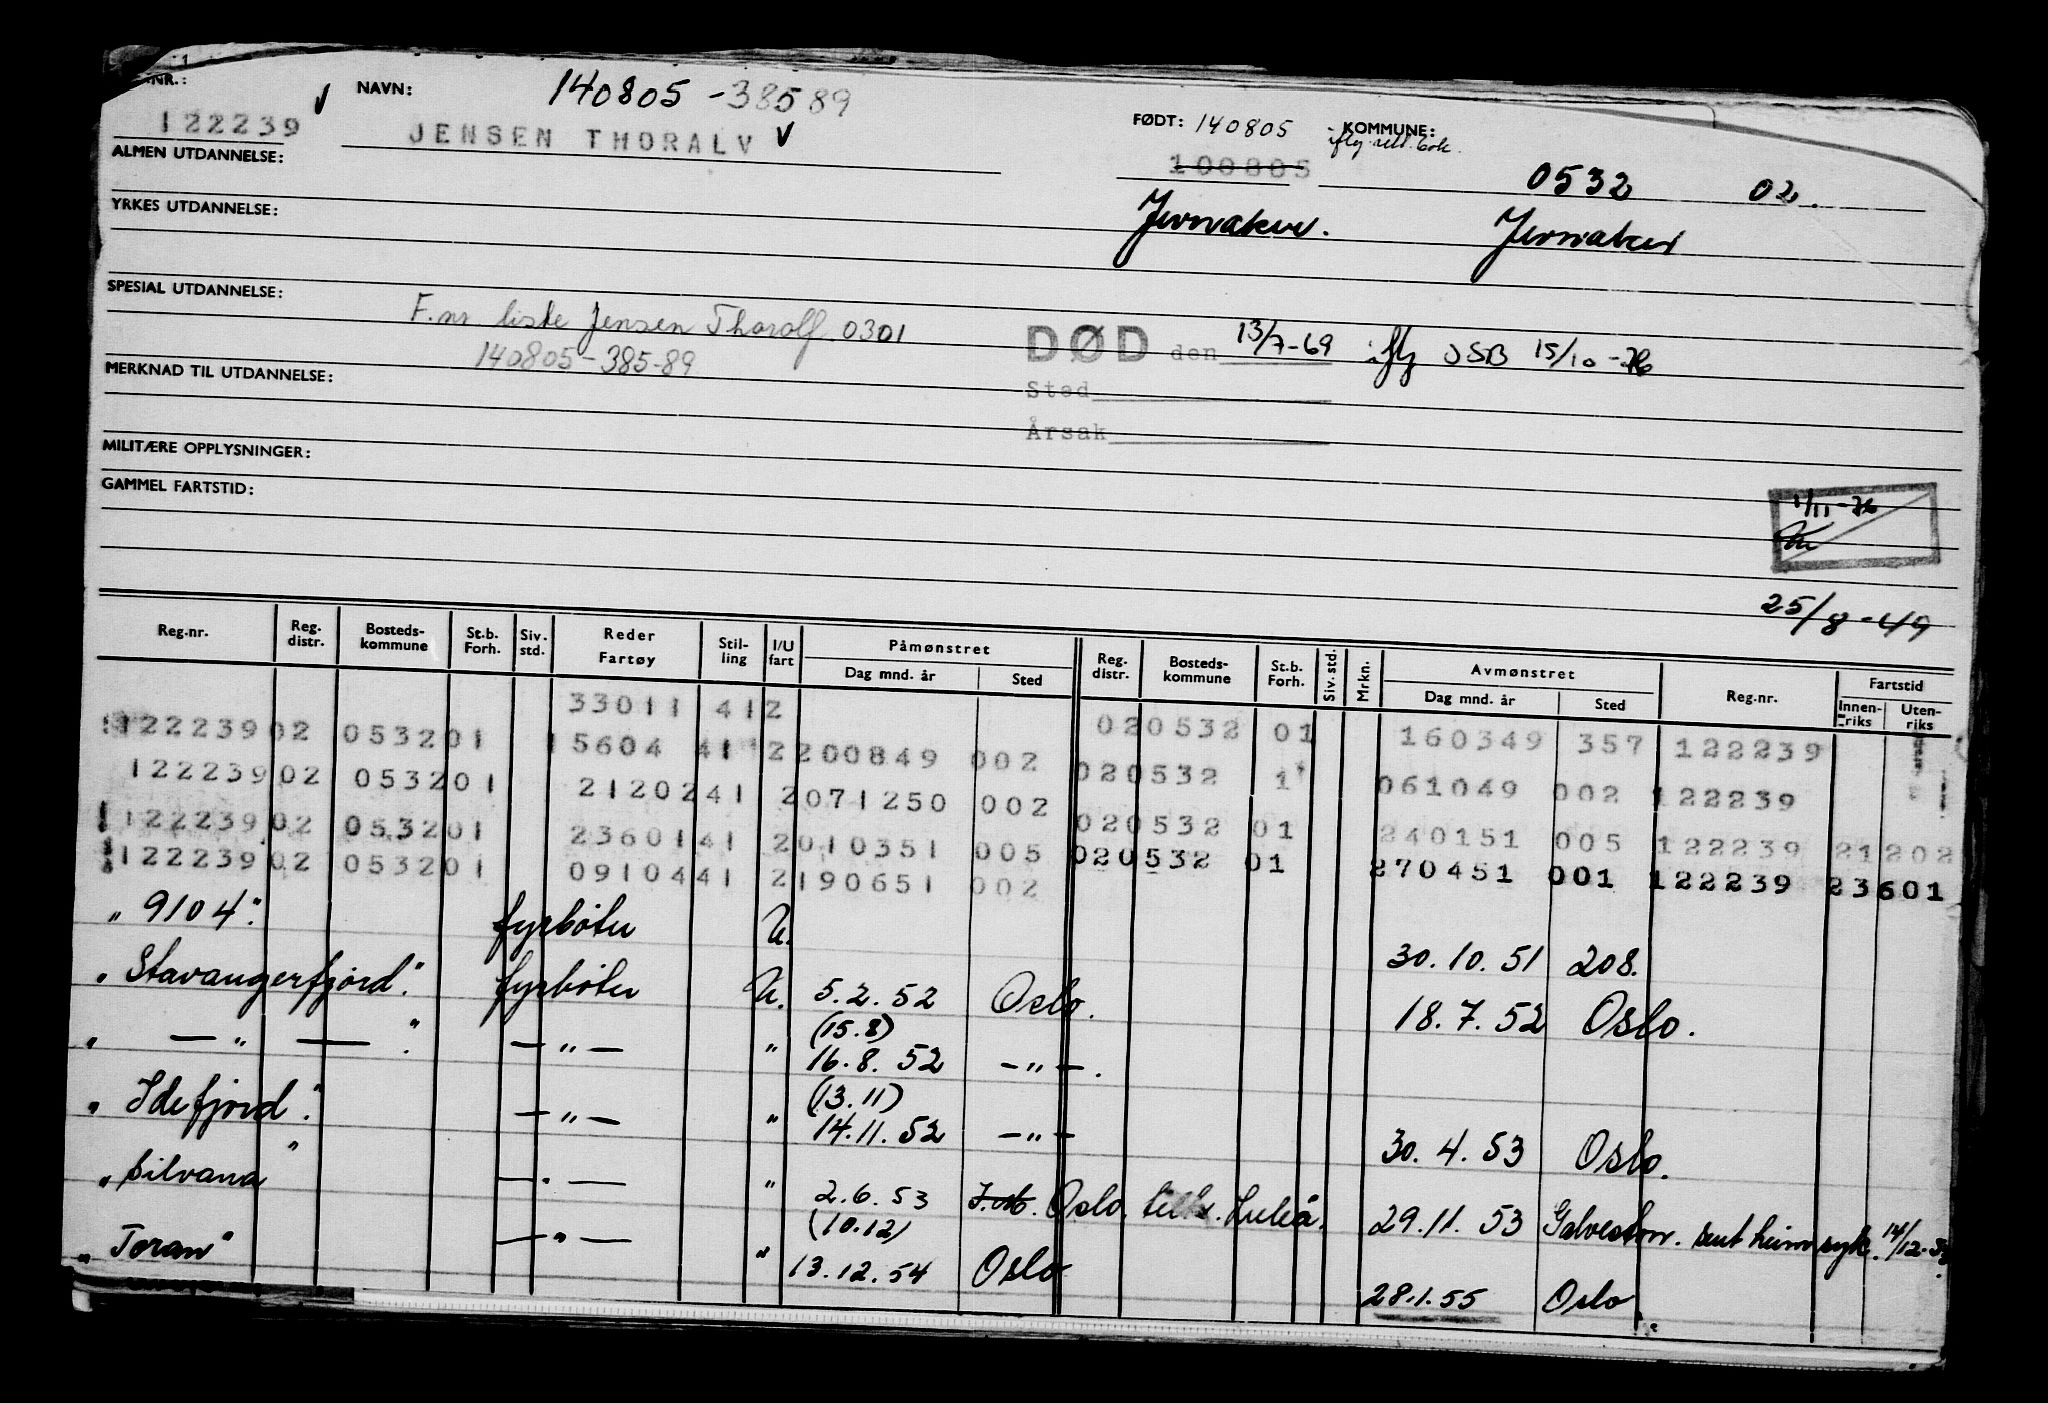 NR.:
122239
NAVN:
140805 - 38589
JENSEN THORALV
FØDT: 140805
KOMMUNE:
ifly. rett. bok.
100805
0532 02.
ALMEN UTDANNELSE:
YRKES UTDANNELSE:
Jevnaker.
Jevnaker
SPESIAL UTDANNELSE:
F.nr liste Jensen Thoralf 0301
140805-385-89
DØD den 13/7-69 ifly JSB 15/10-76
Sted
MERKNAD TIL UTDANNELSE:
Årsak
MILITÆRE OPPLYSNINGER:
GAMMEL FARTSTID:
1/11-76
25/8-49
Reg.nr. Reg. distr. Bosteds-kommune St.b. Forh. Siv. std. Reder Fartøy Stil-ling I/U fart Påmønstret Dag mnd. år Sted Reg. distr. Bosteds-kommune St.b. Forh. Siv. std. Mrkn. Avmønstret Dag mnd. år Sted Reg.nr. Fartstid Innen-riks Uten-riks
33011 412 020532 01 160349 357 122239
122239 02 0532 01 15604 41 2 200849 002 020532 1 061049 002 122239
122239 02 0532 01 21202 41 2 071250 002 020532 01 240151 005 122239 21202
122239 02 0532 01 23601 41 2 010351 005 020532 01 270451 001 122239 23601
122239 02 0532 01 09104 41 2 190651 002
"9104". fyrbøter U. 30.10.51 208.
"Stavangerfjord". fyrbøter U. 5.2.52 Oslo. 18.7.52 Oslo.
(15.8)
" — " — ". — " — " 16.8.52 — " —.
(13.11)
"Idefjord". — " — " 14.11.52 — " — 30.4.53 Oslo.
"Silvana" — " — " 2.6.53 Oslo. Luleå. 29.11.53 Galveston. sent heim syk. 14/12-53.
(10.12)
"Toran" — " — " 13.12.54 Oslo 28.1.55 Oslo.